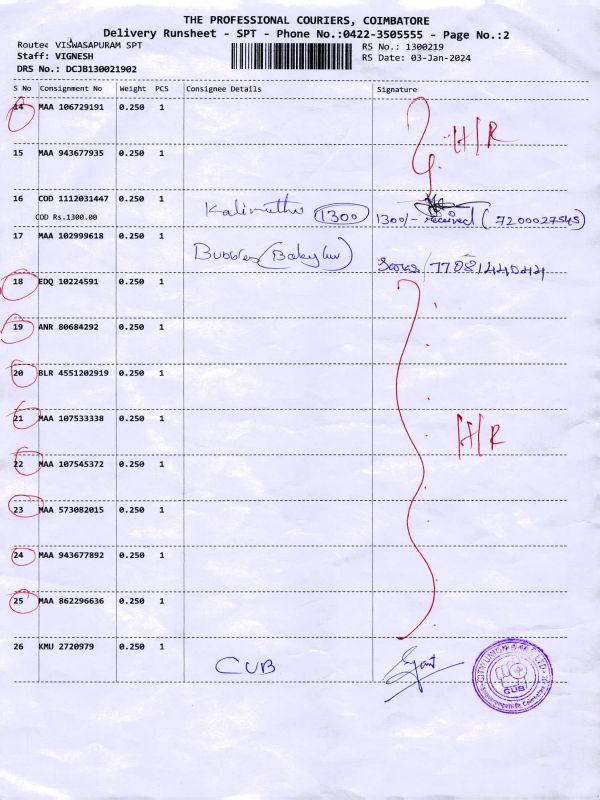 THE PROFESSIONAL COURIERS, COIMBATORE
Delivery Runsheet - SPT - Phone No.:0422-3505555 - Page No.:2
Route: VISWASAPURAM SPT
RS No.: 1300219
Staff: VIGNESH
RS Date: 03-Jan-2024
DRS No.: DCJB130021902
S No Consignment No Weight PCS Consignee Details Signature
14 MAA 106729191 0.250 1
H/R
15 MAA 943677935 0.250 1
16 COD 1112031447 0.250 1
COD Rs.1300.00
Kalimuthu 1300 1300/- received (7200027545)
17 MAA 102999618 0.250 1
Bubbles (Baby 7708144044
18 EDQ 10224591 0.250 1
19 ANR 80684292 0.250 1
20 BLR 4551202919 0.250 1
21 MAA 107533338 0.250 1
H/R
22 MAA 107545372 0.250 1
23 MAA 573082015 0.250 1
24 MAA 943677892 0.250 1
25 MAA 862296636 0.250 1
26 KMU 2720979 0.250 1
CUB
CITY UNION BANK LTD.
CUB